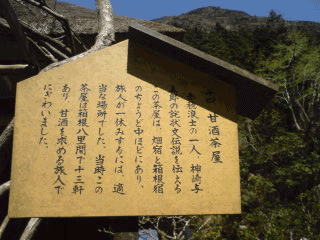 甘酒茶屋
赤穂浪士の一人、神崎与
五郎の詫状文伝説を伝える
この茶屋は、畑宿と箱根宿
のちょうど中ほどにあり、
旅人が一休みするには、適
当な場所でした。当時この
茶屋は箱根八里間で十三軒
あり、甘酒を求める旅人で
にぎわいました。